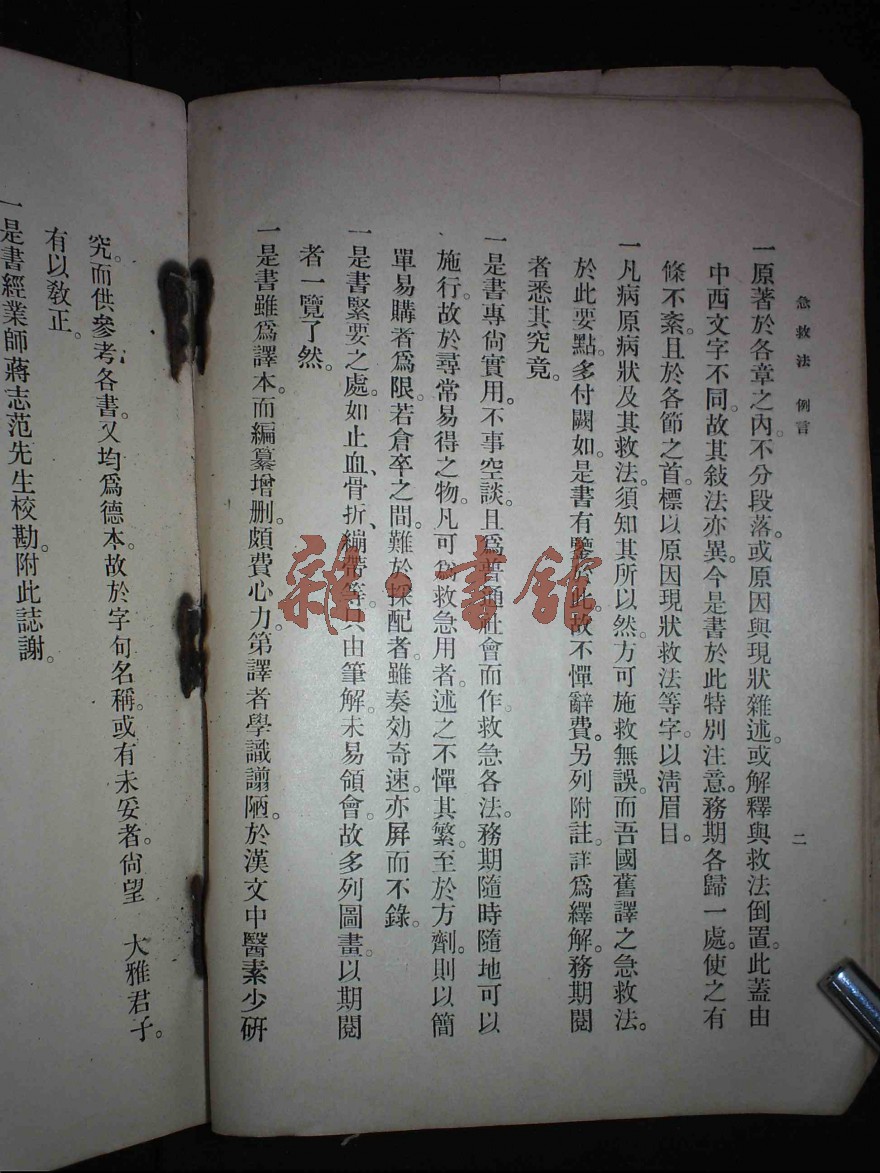 急救法 例言
二
一原著於各章之內。不分段落。或原因與現狀雜述。或解釋與救法倒置。此蓋由
中西文字不同。故其敍法亦異。今是書於此特別注意。務期各歸一處。使之有
條不紊。且於各節之首。標以原因現狀救法等字。以淸眉目。
一凡病原病狀及其救法。須知其所以然。方可施救無誤。而吾國舊譯之急救法。
於此要點。多付闕如。是書有鑒於此。故不憚辭費。另列附註。詳爲繹解。務期閱
者悉其究竟。
一是書專尙實用。不事空談。且爲普通社會而作。救急各法。務期隨時隨地可以
施行。故於尋常易得之物。凡可爲救急用者。述之不憚其繁。至於方劑。則以簡
單易購者爲限。若倉卒之間。難於採配者。雖奏効奇速。亦屏而不錄。
一是書緊要之處。如止血、骨折、繃帶等。由筆解。未易領會。故多列圖畫。以期閱
者一覽了然。
一是書雖爲譯本。而編纂增删。頗費心力。第譯者學識譾陋。於漢文中醫素少硏
究。而供參考各書。又均爲德本。故於字句名稱。或有未妥者。尙望 大雅君子。
有以敎正。
一是書經業師蔣志范先生校勘。附此誌謝。
雜·書館